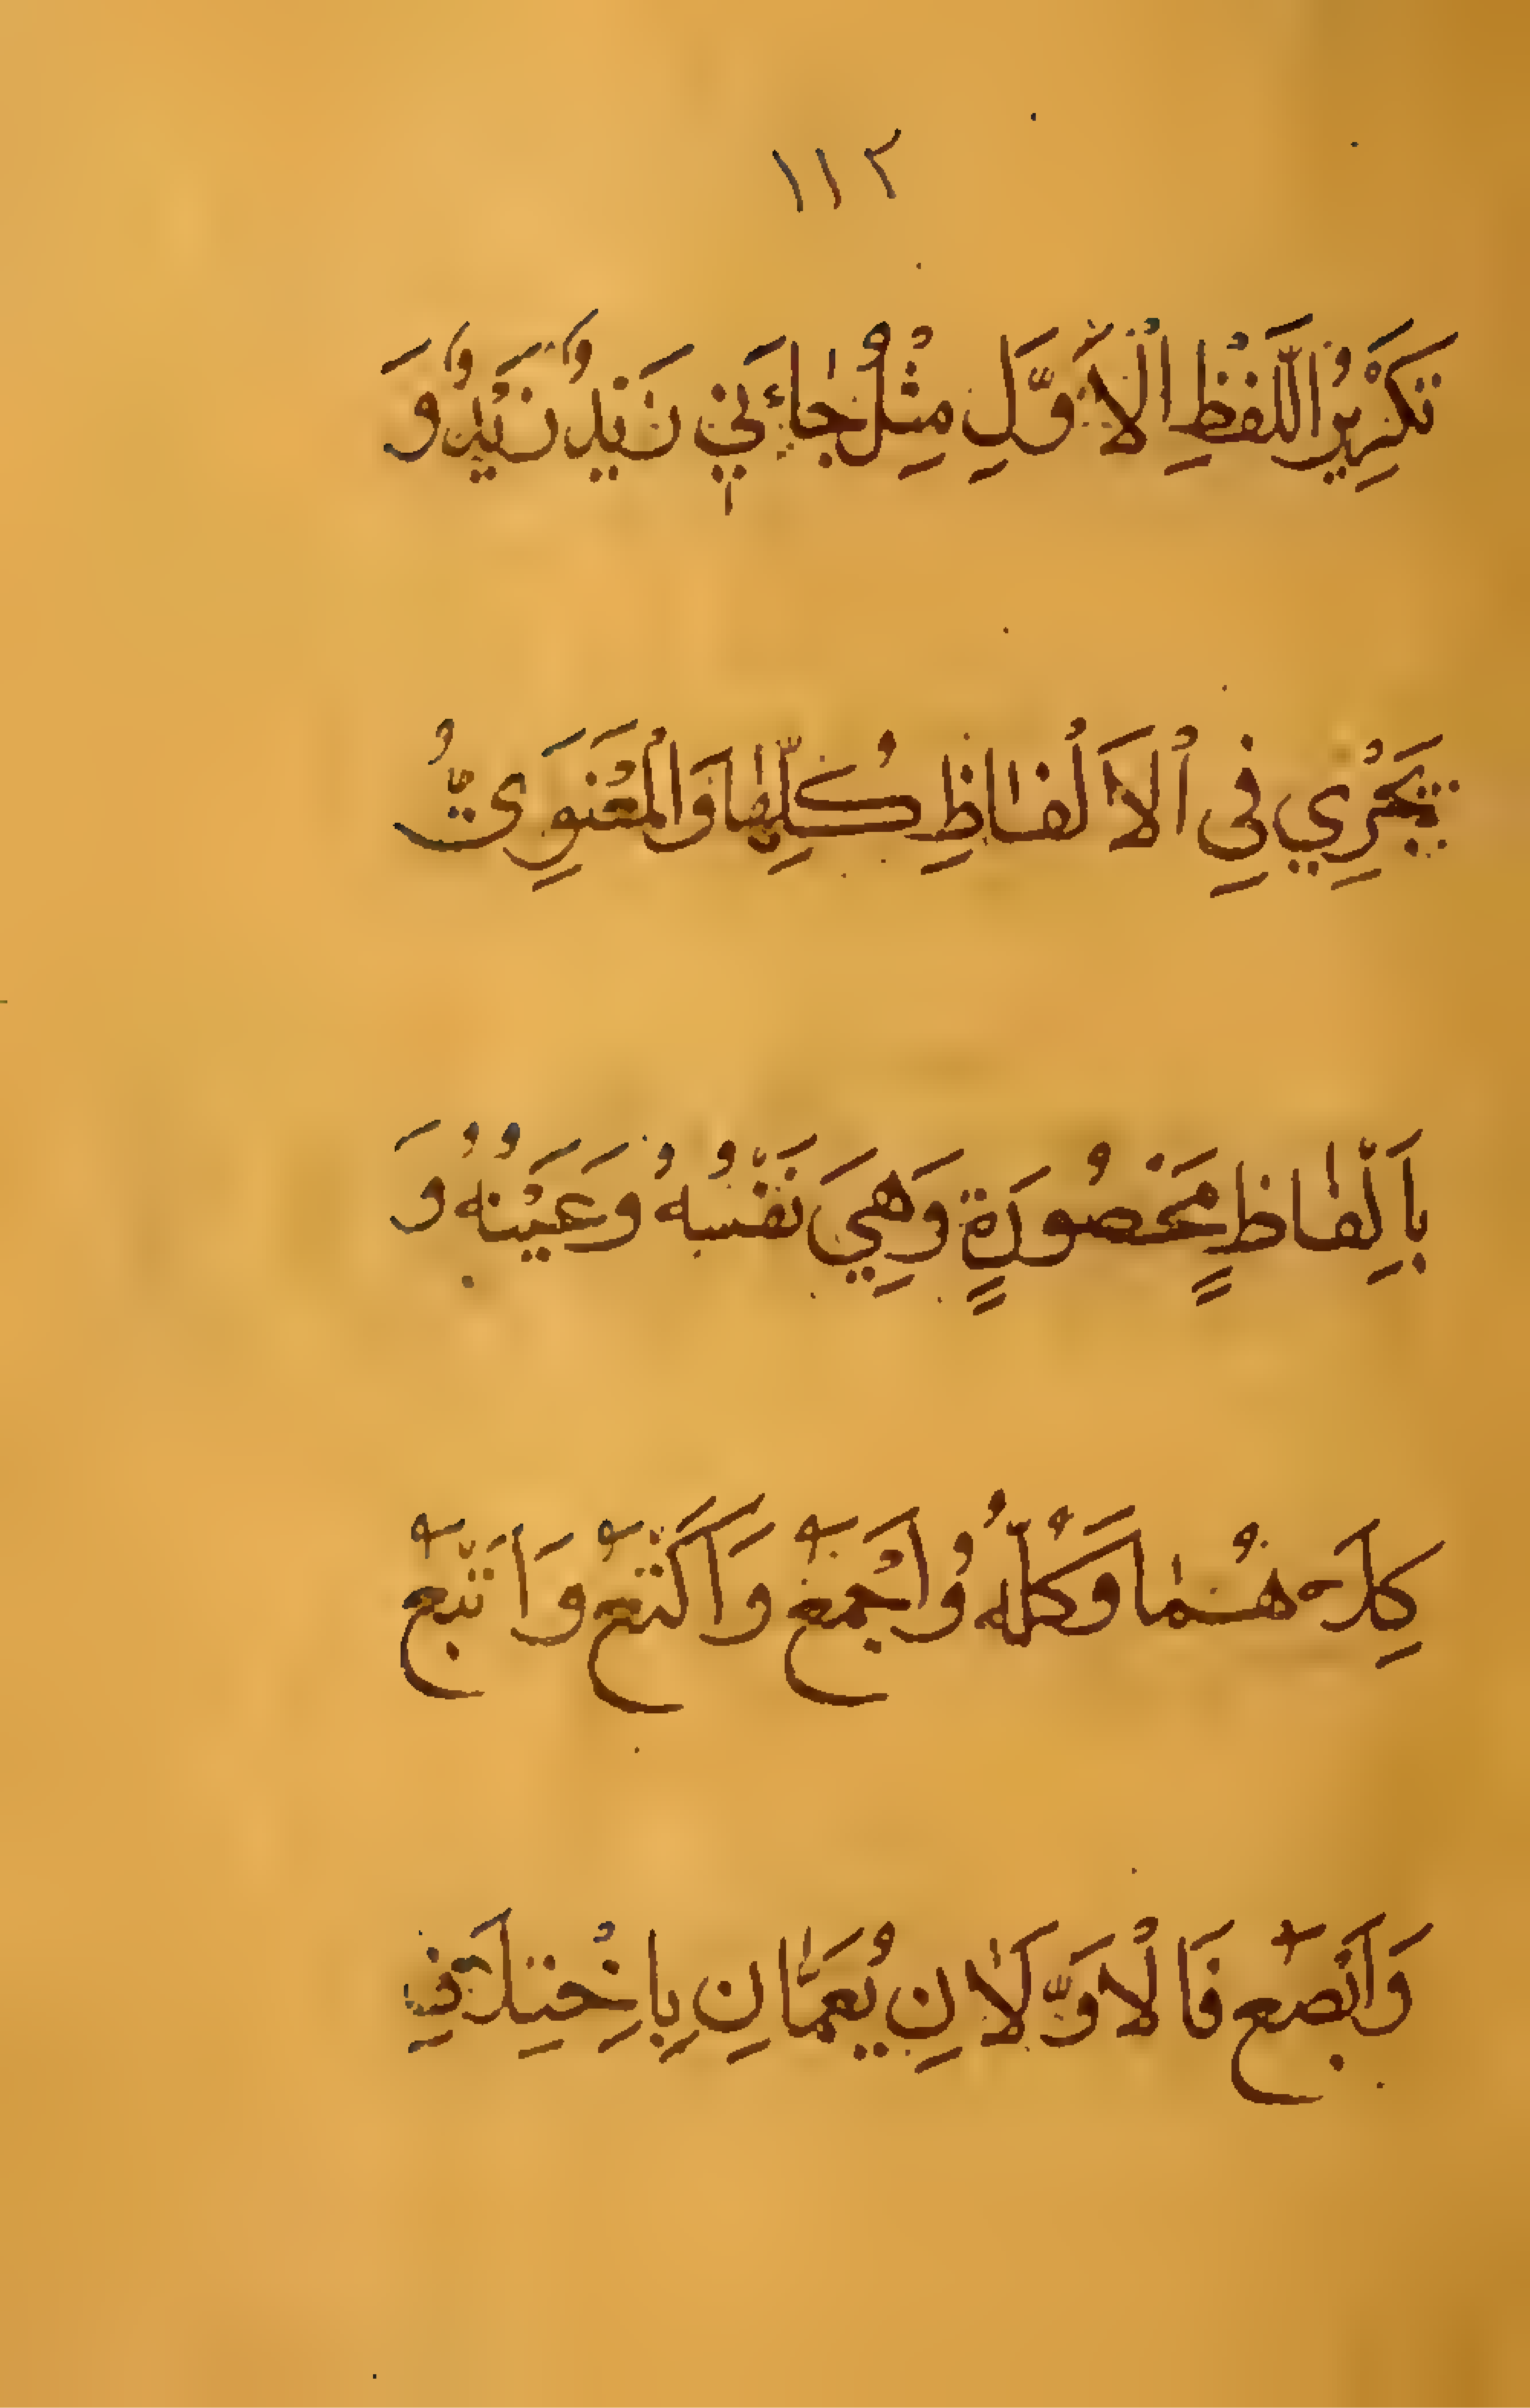 ١١٢
تَكْرِيْرُ اللَّفْظِ الْأَوَّلِ مِثْلُ جَاءَنِي زَيْدٌ زَيْدٌ وَ
يَجْرِي فِي الْأَلْفَاظِ كُلِّهَا وَالْمَعْنَوِيُّ
بِاَلْفَاظٍ مَحْصُورَةٍ وَهِيَ نَفْسُهُ وَعَيْنُهُ وَ
كِلَاهُمَا وَكُلُّهُ وَاَجْمَعُ وَاَكْتَعُ وَاَتْبَعُ
وَاَبْصَعُ فَالْاَوَّلَانِ يَعُمَّانِ بِاخْتِلَافِ